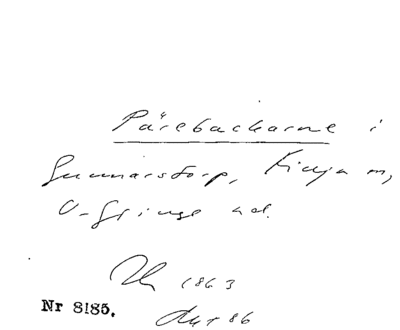 Pärebackarne i
Gunnarstorp, Finja m,
V-Göinge hd.
1863
Nr 8185.